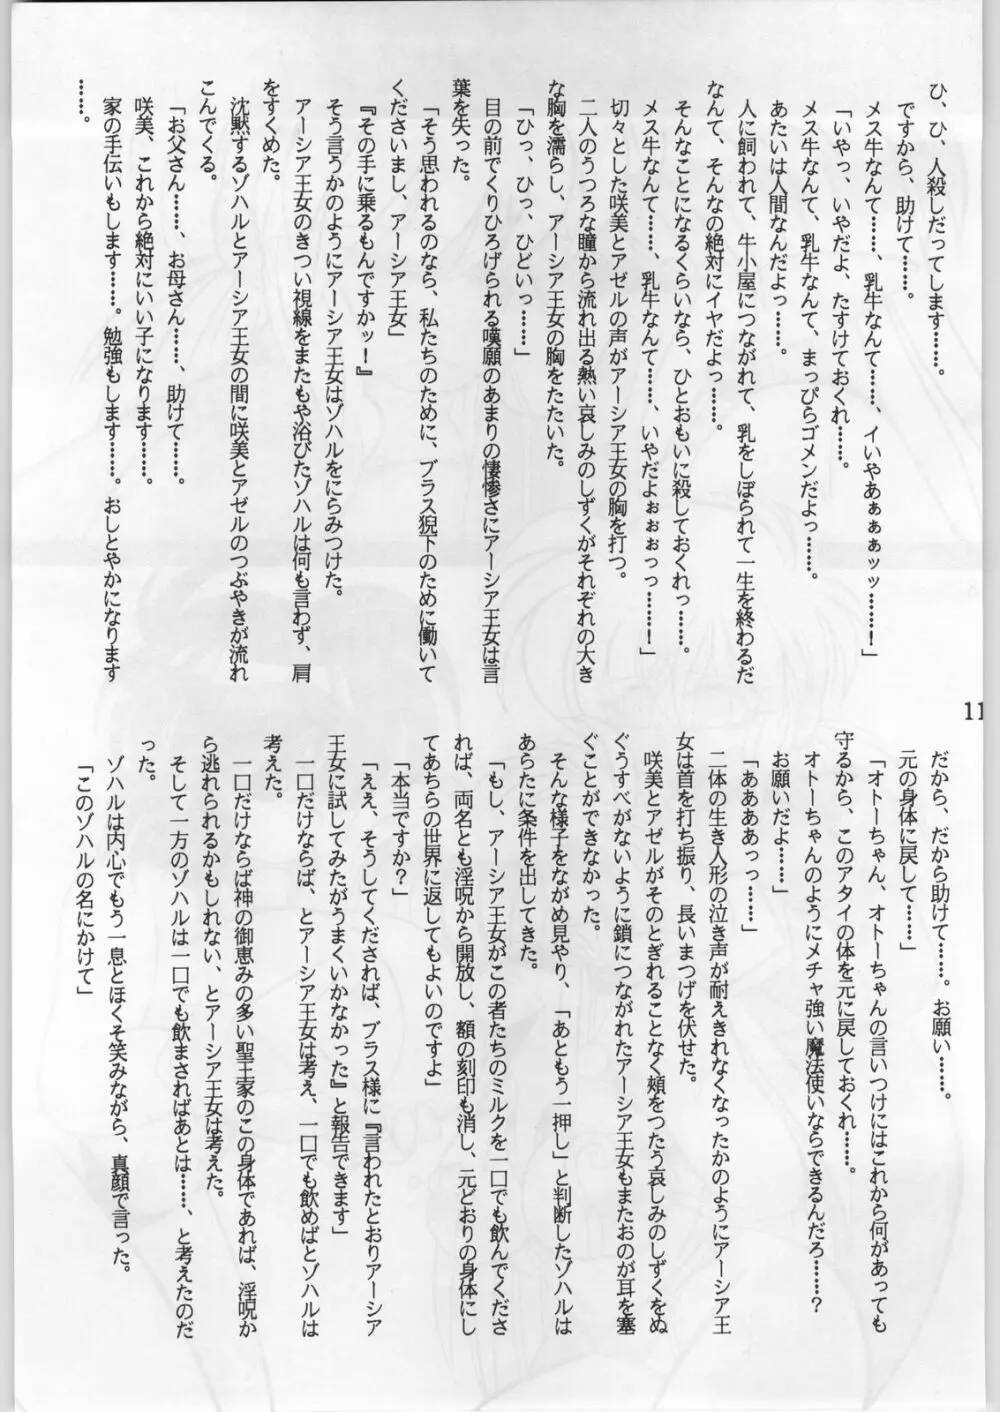 ひ、ひ、人殺しだってします……。
ですから、助けて……。
メス牛なんて……、乳牛なんて……、イいやあぁぁぁッッ……！
「いやっ、いやだよ、たすけておくれ……。
メス牛なんて、乳牛なんて、まっぴらゴメンだよっ……。
あたいは人間なんだよっ……。
人に飼われて、牛小屋につながれて、乳をしぼられて一生を終わるだ
なんて、そんなの絶対にイヤだよっ……。
そんなことになるくらいなら、ひとおもいに殺しておくれっ……。
メス牛なんて……、乳牛なんて……、いやだよぉぉぉっっ……！」
切々とした咲美とアゼルの声がアーシア王女の胸を打つ。
二人のうつろな瞳から流れ出る熱い哀しみのしずくがそれぞれの大き
な胸を濡らし、アーシア王女の胸をたたいた。
「ひっ、ひっ、ひどいっ……」
目の前でくりひろげられる嘆願のあまりの悽惨さにアーシア王女は言
葉を失った。
「そう思われるのなら、私たちのために、ブラス猊下のために働いて
くださいまし、アーシア王女」
『その手に乗るもんですかッ！』
そう言うかのようにアーシア王女はゾハルをにらみつけた。
アーシア王女のきつい視線をまたもや浴びたゾハルは何も言わず、肩
をすくめた。
沈黙するゾハルとアーシア王女の間に咲美とアゼルのつぶやきが流れ
こんでくる。
「お父さん……、お母さん……、助けて……。
咲美、これから絶対にいい子になります……。
家の手伝いもします……。勉強もします……。おしとやかになります
……。
だから、だから助けて……。お願い……。
元の身体に戻して……」
「オトーちゃん、オトーちゃんの言いつけにはこれから何があっても
守るから、このアタイの体を元に戻しておくれ……。
オトーちゃんのようにメチャ強い魔法使いならできるんだろ……？
お願いだよ……」
「ああああっっ……」
二体の生き人形の泣き声が耐えきれなくなったかのようにアーシア王
女は首を打ち振り、長いまつげを伏せた。
咲美とアゼルがそのとぎれることなく頰をつたう哀しみのしずくをぬ
ぐうすべがないように鎖につながれたアーシア王女もまたおのが耳を塞
ぐことができなかった。
そんな様子をながめ見やり、「あともう一押し」と判断したゾハルは
あらたに条件を出してきた。
「もし、アーシア王女がこの者たちのミルクを一口でも飲んでくださ
れば、両名とも淫呪から開放し、額の刻印も消し、元どおりの身体にし
てあちらの世界に返してもよいのですよ」
「本当ですか？」
「ええ、そうしてくだされば、ブラス様に『言われたとおりアーシア
王女に試してみたがうまくいかなかった』と報告できます」
一口だけならば、とアーシア王女は考え、一口でも飲めばとゾハルは
考えた。
一口だけならば神の御恵みの多い聖王家のこの身体であれば、淫呪か
ら逃れられるかもしれない、とアーシア王女は考えた。
そして一方のゾハルは一口でも飲まされればあとは……、と考えたのだ
った。
ゾハルは内心でもう一息とほくそ笑みながら、真顔で言った。
「このゾハルの名にかけて」
11